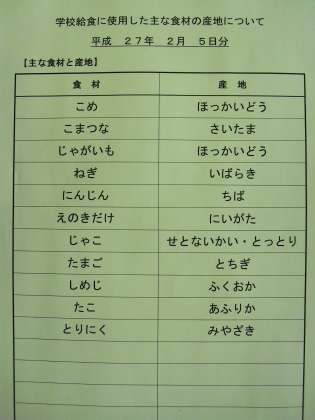 学校給食に使用した主な食材の産地について
平成　２７年　２月　５日分
【主な食材と産地】
食　材　産　地
こめ　ほっかいどう
こまつな　さいたま
じゃがいも　ほっかいどう
ねぎ　いばらき
にんじん　ちば
えのきだけ　にいがた
じゃこ　せとないかい・とっとり
たまご　とちぎ
しめじ　ふくおか
たこ　あふりか
とりにく　みやざき